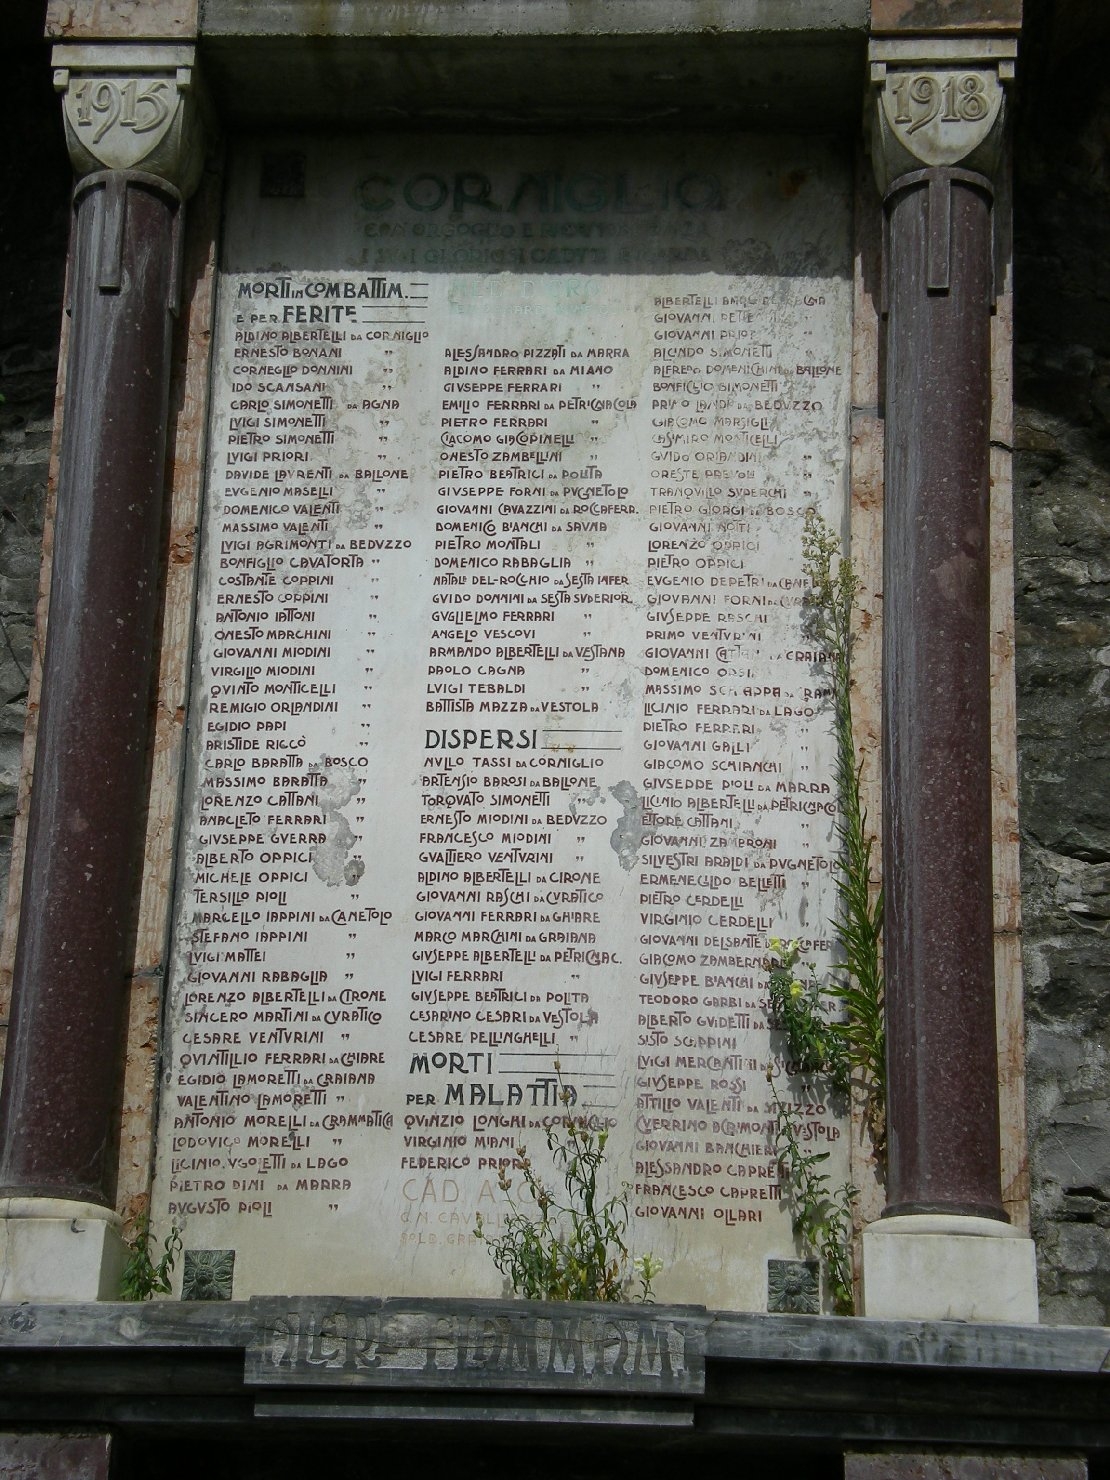 1915
1918
CORNIGLIO
CON ORGOGLIO E
I SUOI GLORIOSI CADUTI RICORDA
MORTI IN COMBATTIM.
E PER FERITE
ALDINO ALBERTELLI DA CORNIGLIO
ERNESTO BONANI "
CORNEGLIO DONNINI "
IDO SCANSANI "
CARLO SIMONETTI DA AGNA
LVIGI SIMONETTI "
PIETRO SIMONETTI "
LVIGI PRIORI "
DAVIDE LAVRENTI DA BALLONE
EVGENIO MASELLI "
DOMENICO VALENTI "
MASSIMO VALENTI "
LVIGI AGRIMONTI DA BEDVZZO
BONFIGLIO CAVATORTA "
COSTANTE COPPINI "
ERNESTO COPPINI "
ANTONIO IATTONI "
ONESTO MARCHINI "
GIOVANNI MIODINI "
VIRGILIO MIODINI "
QVINTO MONTICELLI "
REMIGIO ORLANDINI "
EGIDIO PAPI "
ARISTIDE RICCÒ "
CARLO BARATTA DA BOSCO
MASSIMO BARATTA "
LORENZO CATTANI "
ANACLETO FERRARI "
GIVSEPPE GVERRA "
ALBERTO OPPICI "
MICHELE OPPICI "
TERSILIO PIOLI "
MARCELLO IAPPINI DA CANETOLO
STEFANO IAPPINI "
LVIGI MATTEI "
GIOVANNI RABAGLIA "
LORENZO ALBERTELLI DA CIRONE
SINCERO MARTINI DA CVRATICO
CESARE VENTVRINI "
QVINTILLIO FERRARI DA GHIARE
EGIDIO LAMORETTI DA GRAIANA
VALENTINO LAMORETTI "
ANTONIO MORELLI DA GRAMMATICA
LODOVICO MORELLI "
LICINIO VGOLETTI DA LAGO
PIETRO DINI DA MARRA
AVGVSTO PIOLI "
ALESSANDRO PIZZATI DA MARRA
ALDINO FERRARI DA MIANO
GIVSEPPE FERRARI "
EMILIO FERRARI DA PETRIGNACOLA
PIETRO FERRARI "
GIACOMO GIACOPINELLI "
ONESTO ZAMBELLINI "
PIETRO BEATRICI DA POLITA
GIVSEPPE FORNI DA PVGNETOLO
GIOVANNI CAVAZZINI DA ROCCAFERR.
DOMENICO BIANCHI DA SAVNA
PIETRO MONTALI "
DOMENICO RABAGLIA "
NATALE DEL-ROCCHIO DA SESTA INFER
GVIDO DONNINI DA SESTA SVPERIOR.
GVGLIELMO FERRARI "
ANGELO VESCOVI "
ARMANDO ALBERTELLI DA VESTANA
PAOLO CAGNA "
LVIGI TEBALDI "
BATTISTA MAZZA DA VESTOLA
DISPERSI
NVLLO TASSI DA CORNIGLIO
ARTENSIO BAROSI DA BALLONE
TROVATO SIMONETTI "
ERNESTO MIODINI DA BEDVZZO
FRANCESCO MIODINI "
GVALTIERO VENTVRINI "
ALDINO ALBERTELLI DA CIRONE
GIOVANNI RASCHI DA CVRATICO
GIOVANNI FERRARI DA GHIARE
MARCO MARCHINI DA GRAIANA
GIVSEPPE ALBERTELLI DA PETRIGNAC.
LVIGI FERRARI "
GIVSEPPE BEATRICI DA POLITA
CESARINO CESARI DA VESTOLA
CESARE PELLINGHELLI "
MORTI
PER MALATTIA
QVINZIO LONGHI DA CORNIGLIO
VIRGINIO MIANI "
FEDERICO PRIORI
ALBERTELLI DA AGNA
GIOVANNI "
GIOVANNI PRIORI "
SIMONETTI "
ALFREDO DOMENICHINI DA BALLONE
BONFIGLIO SIMONETTI "
PRIMO DA BEDVZZO
GIACOMO MARSIGLI "
CASIMIRO MONTICELLI "
GVIDO ORLANDINI "
ORESTE "
TRANQVILLO SVPERCHI "
PIETRO GIORGI DA BOSCO
GIOVANNI NOTTI "
LORENZO OPPICI "
PIETRO OPPICI
EVGENIO DEPETRI DA
GIOVANNI FORNI DA
GIVSEPPE RASCHI
PRIMO VENTVRINI
GIOVANNI CATTANI DA GRAIANA
DOMENICO
MASSIMO SCHIAPPA DA GRAM
LICINIO FERRARI DA LAGO
PIETRO FERRARI "
GIOVANNI GALLI "
GIACOMO SCHIANCHI "
GIVSEPPE PIOLI DA MARRA
LICINIO ALBERTELLI DA PETRIGNACO
ETTORE CATTANI "
GIOVANNI ZAMBRONI "
SILVESTRI ARALDI DA PVGNETOLO
ERMENEGILDO BELLETTI "
PIETRO CERDELLI "
VIRGINIO CERDELLI "
GIOVANNI DELSANTE DA
GIACOMO ZAMBERNARDI
GIVSEPPE BIANCHI DA
TEODORO GARBI DA
ALBERTO GVIDETTI DA
SISTO SCAPPINI
LVIGI MERCANTINI
GIVSEPPE ROSSI
ATTILIO VALENTI DA
GVERRINO AGRIMONTI DA VESTOLA
GIOVANNI BANCHIERI "
ALESSANDRO CAPRETTI
FRANCESCO CAPRETTI
GIOVANNI OLLARI "